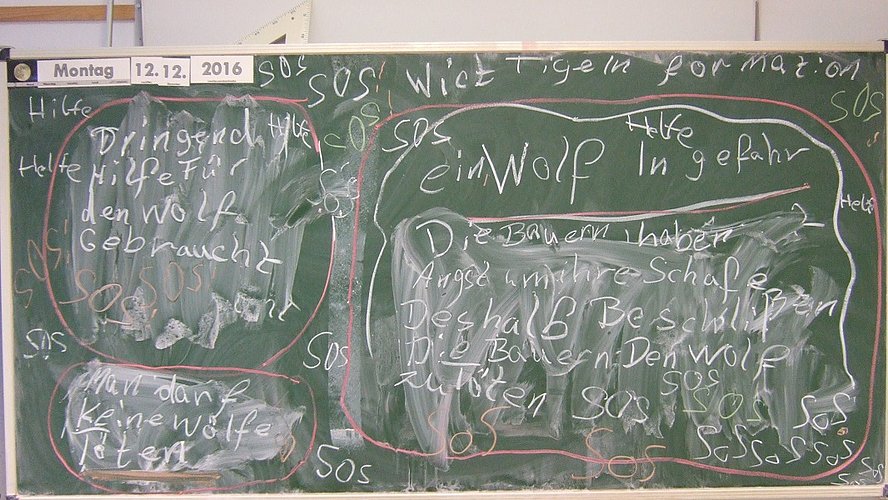 Montag 12. 12. 2016
SOS SOS! Wict Tigeln formation
SOS
Hilfe
Dringend Hilfe
Helfe Hilfe Für
den Wolf
Gebraucht
SOS!
SOS
SOS SOS!
SOS
SOS
SOS
SOS
Man darf
Keine wölfe
Töten
SOS
SOS Helfe
ein Wolf In gefahr
Helfe
Die Bauern haben
Angst um ihre Schafe
Deshalb Beschlißen
Die Bauern Den Wolf
zu töten SOS SOS
SOS
SOS SOS
SOS
SOS SOS SOS
SOS
SOS